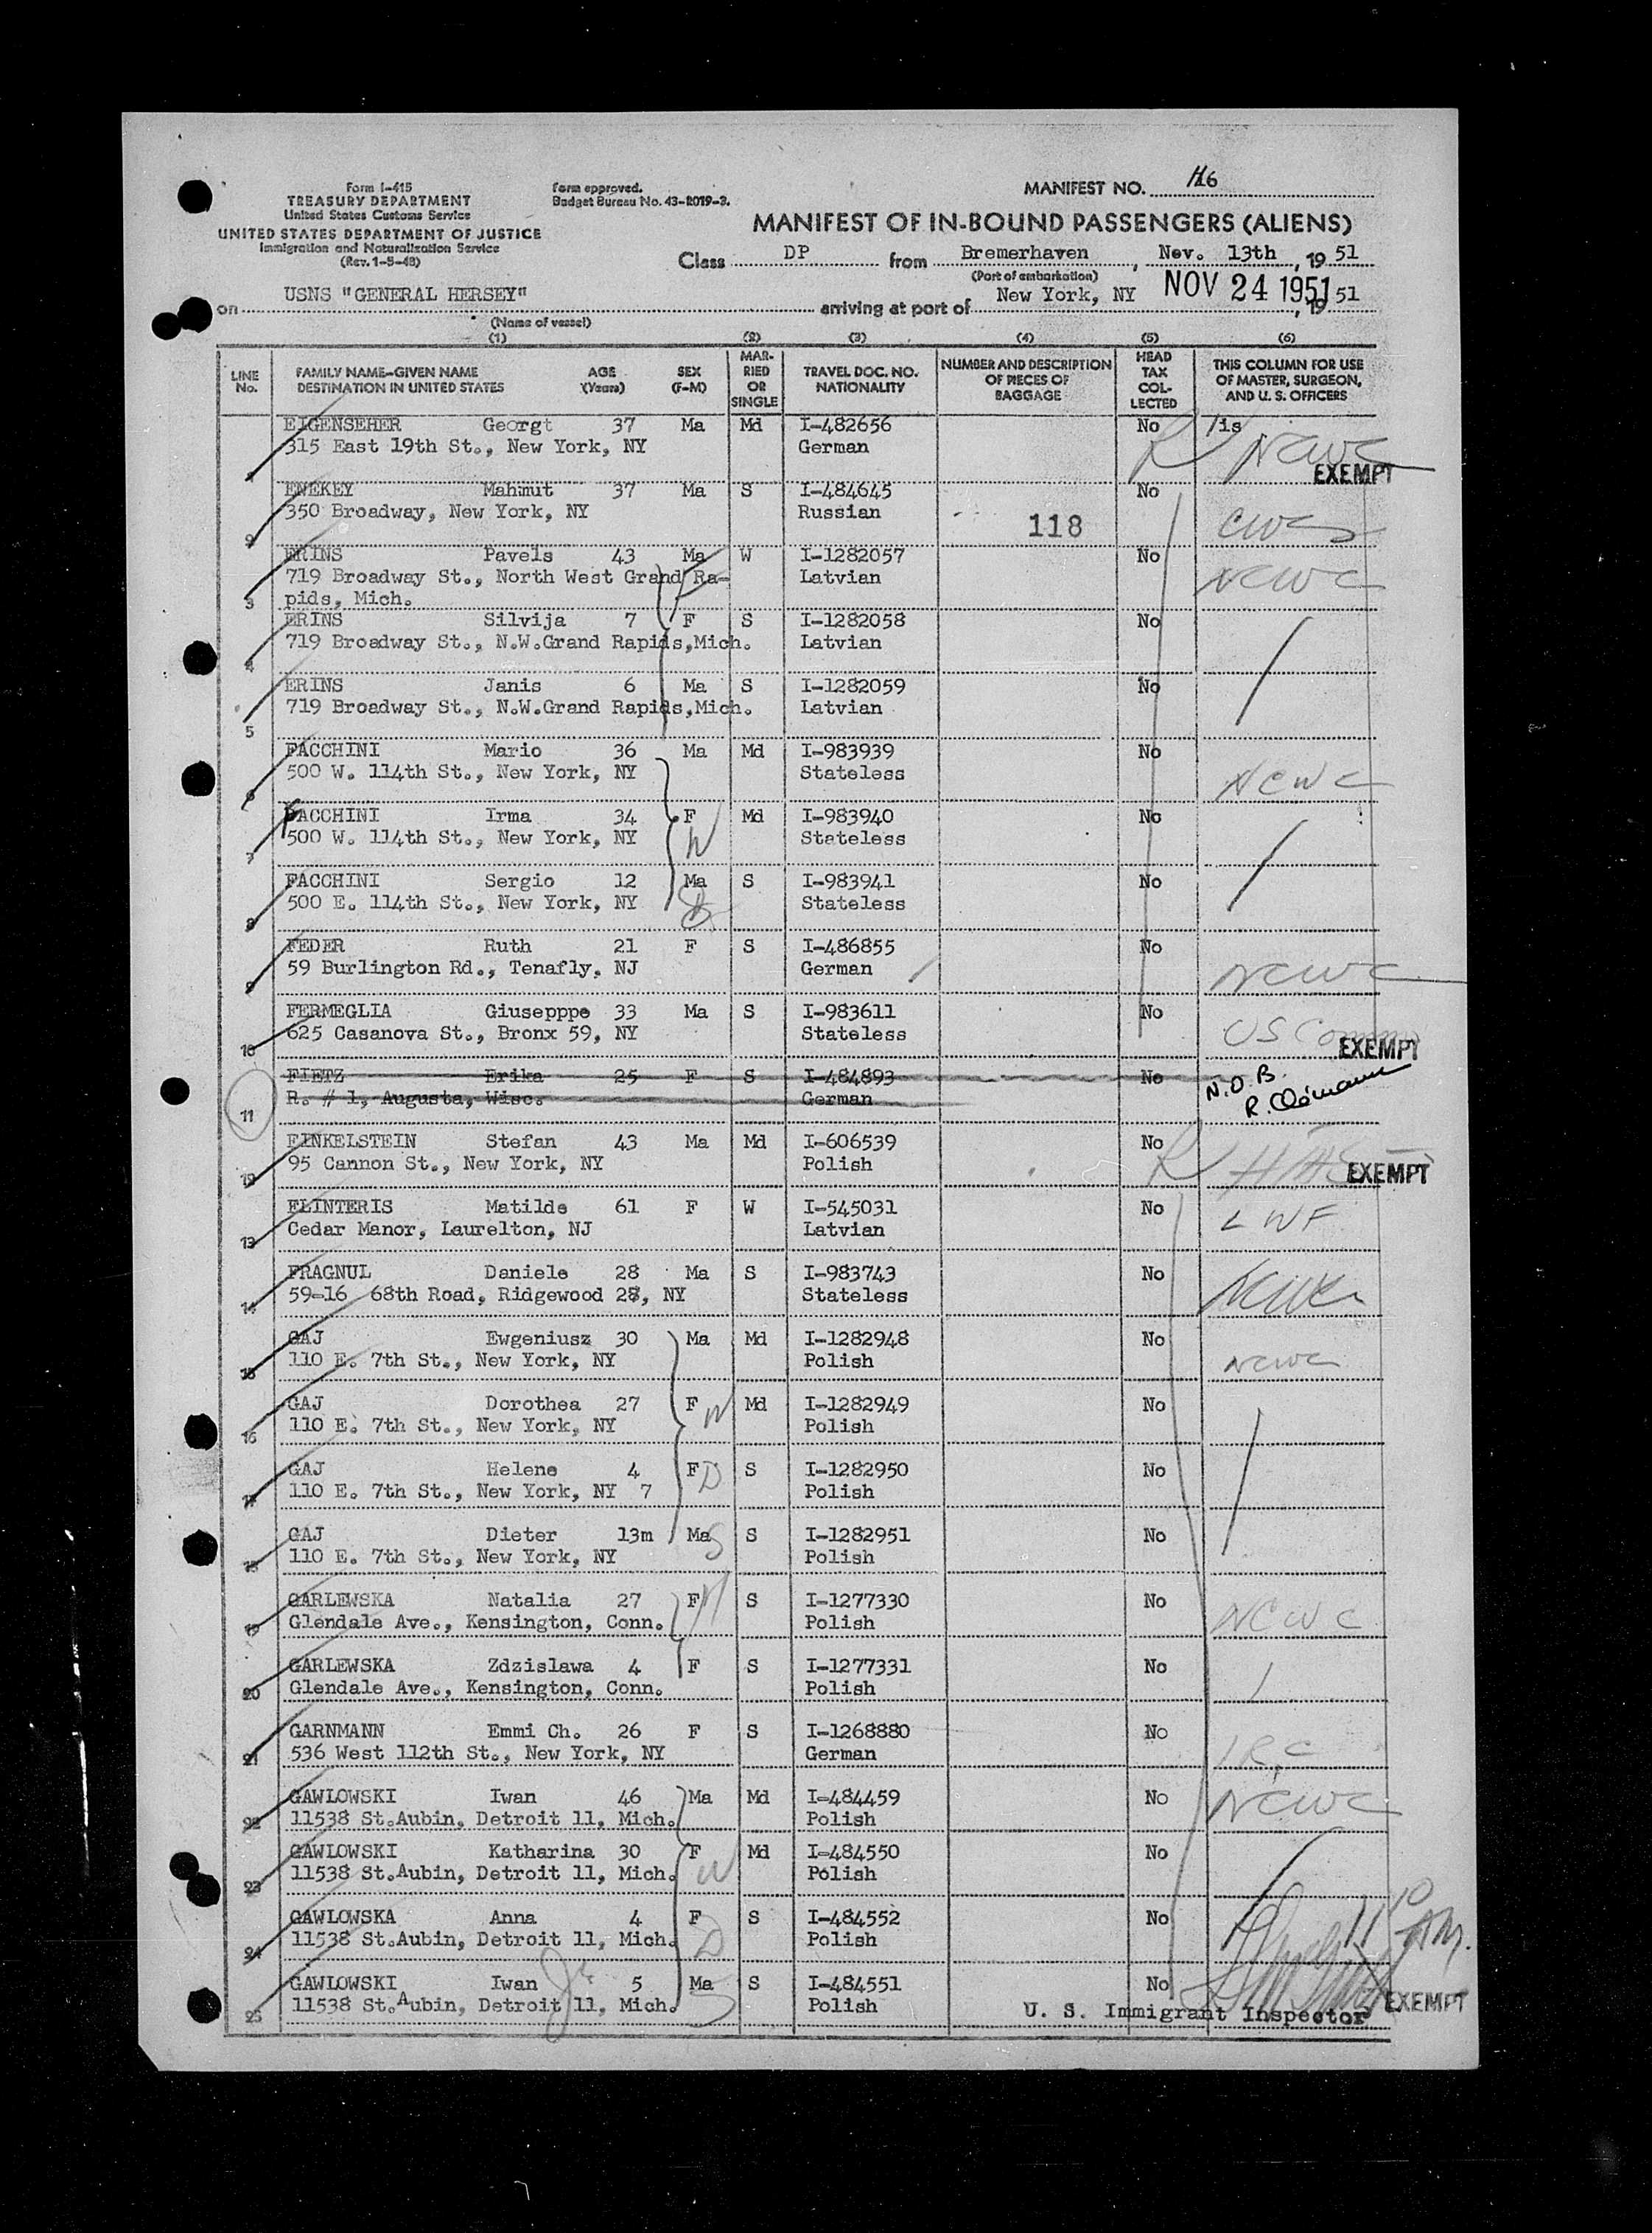 Form I-415
TREASURY DEPARTMENT
United States Customs Service
UNITED STATES DEPARTMENT OF JUSTICE
Immigration and Naturalization Service
(Rev. 1-5-48)
Form approved.
Budget Bureau No. 43-R019-3.
MANIFEST NO. 116
MANIFEST OF IN-BOUND PASSENGERS (ALIENS)
Class DP from Bremerhaven, Nov. 13th, 19 51
(Port of embarkation)
on USNS "GENERAL HERSEY" arriving at port of New York, NY NOV 24 1951, 19 51
(Name of vessel)
(1) (2) (3) (4) (5) (6)
LINE No. FAMILY NAME-GIVEN NAME DESTINATION IN UNITED STATES AGE (Years) SEX (F-M) MARRIED OR SINGLE TRAVEL DOC. NO. NATIONALITY NUMBER AND DESCRIPTION OF PIECES OF BAGGAGE HEAD TAX COLLECTED THIS COLUMN FOR USE OF MASTER, SURGEON, AND U. S. OFFICERS
EIGENSEHER Georgt 37 Ma Md I-482656 No /is
315 East 19th St., New York, NY German R NCWC
EXEMPT
ENEKEY Mahmut 37 Ma S I-484645 No
2 350 Broadway, New York, NY Russian 118 CWS
ERINS Pavels 43 Ma W I-1282057 No
719 Broadway St., North West Grand Ra- Latvian NCWC
3 pids, Mich.
ERINS Silvija 7 F S I-1282058 No
4 719 Broadway St., N.W.Grand Rapids,Mich. Latvian
ERINS Janis 6 Ma S I-1282059 No
719 Broadway St., N.W.Grand Rapids,Mich. Latvian
5
FACCHINI Mario 36 Ma Md I-983939 No
6 500 W. 114th St., New York, NY Stateless NCWC
FACCHINI Irma 34 F Md I-983940 No
7 500 W. 114th St., New York, NY W Stateless
FACCHINI Sergio 12 Ma S I-983941 No
8 500 E. 114th St., New York, NY Stateless
FEDER Ruth 21 F S I-486855 No
9 59 Burlington Rd., Tenafly, NJ German NCWC
FERMEGLIA Giusepppe 33 Ma S I-983611 No
10 625 Casanova St., Bronx 59, NY Stateless EXEMPT
FIETZ Erika 25 F S I-484893 No N.O.B.
11 R. # 1, Augusta, Wisc. German
FINKELSTEIN Stefan 43 Ma Md I-606539 No
12 95 Cannon St., New York, NY Polish R HIAS EXEMPT
FLINTERIS Matilde 61 F W I-545031 No
13 Cedar Manor, Laurelton, NJ Latvian LWF
FRAGNUL Daniele 28 Ma S I-983743 No
14 59-16 68th Road, Ridgewood 28, NY Stateless NCWC
GAJ Ewgeniusz 30 Ma Md I-1282948 No
15 110 E. 7th St., New York, NY Polish NCWC
GAJ Dorothea 27 F W Md I-1282949 No
16 110 E. 7th St., New York, NY Polish
GAJ Helene 4 F D S I-1282950 No
17 110 E. 7th St., New York, NY 7 Polish
GAJ Dieter 13m Ma S S I-1282951 No
18 110 E. 7th St., New York, NY Polish
GARLEWSKA Natalia 27 F S I-1277330 No
19 Glendale Ave., Kensington, Conn. Polish NCWC
GARLEWSKA Zdzislawa 4 F S I-1277331 No
20 Glendale Ave., Kensington, Conn. Polish
GARNMANN Emmi Ch. 26 F S I-1268880 No
21 536 West 112th St., New York, NY German IRC
GAWLOWSKI Iwan 46 Ma Md I-484459 No
22 11538 St.Aubin, Detroit 11, Mich. Polish NCWC
GAWLOWSKI Katharina 30 F Md I-484550 No
23 11538 St.Aubin, Detroit 11, Mich. W Polish
GAWLOWSKA Anna 4 F S I-484552 No
24 11538 St.Aubin, Detroit 11, Mich. D Polish 11 10 AM.
GAWLOWSKI Iwan Jr 5 Ma S I-484551 No
25 11538 St.Aubin, Detroit 11, Mich. S Polish EXEMPT
U. S. Immigrant Inspector